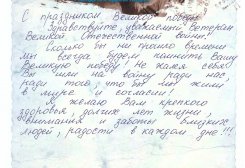 С праздником Великой победы!
Здравствуйте уважаемый Ветеран
Великой Отечественной войны!
Сколько бы ни прошло времени
мы всегда будем помнить Вашу
Великую победу! Не жалея себя
Вы шли на войну ради нас,
ради того, что бы мы жили
в мире и согласии!
Я желаю Вам крепкого
здоровья, долгих лет жизни,
внимания и заботы близких
людей, радости в каждом дне!!!